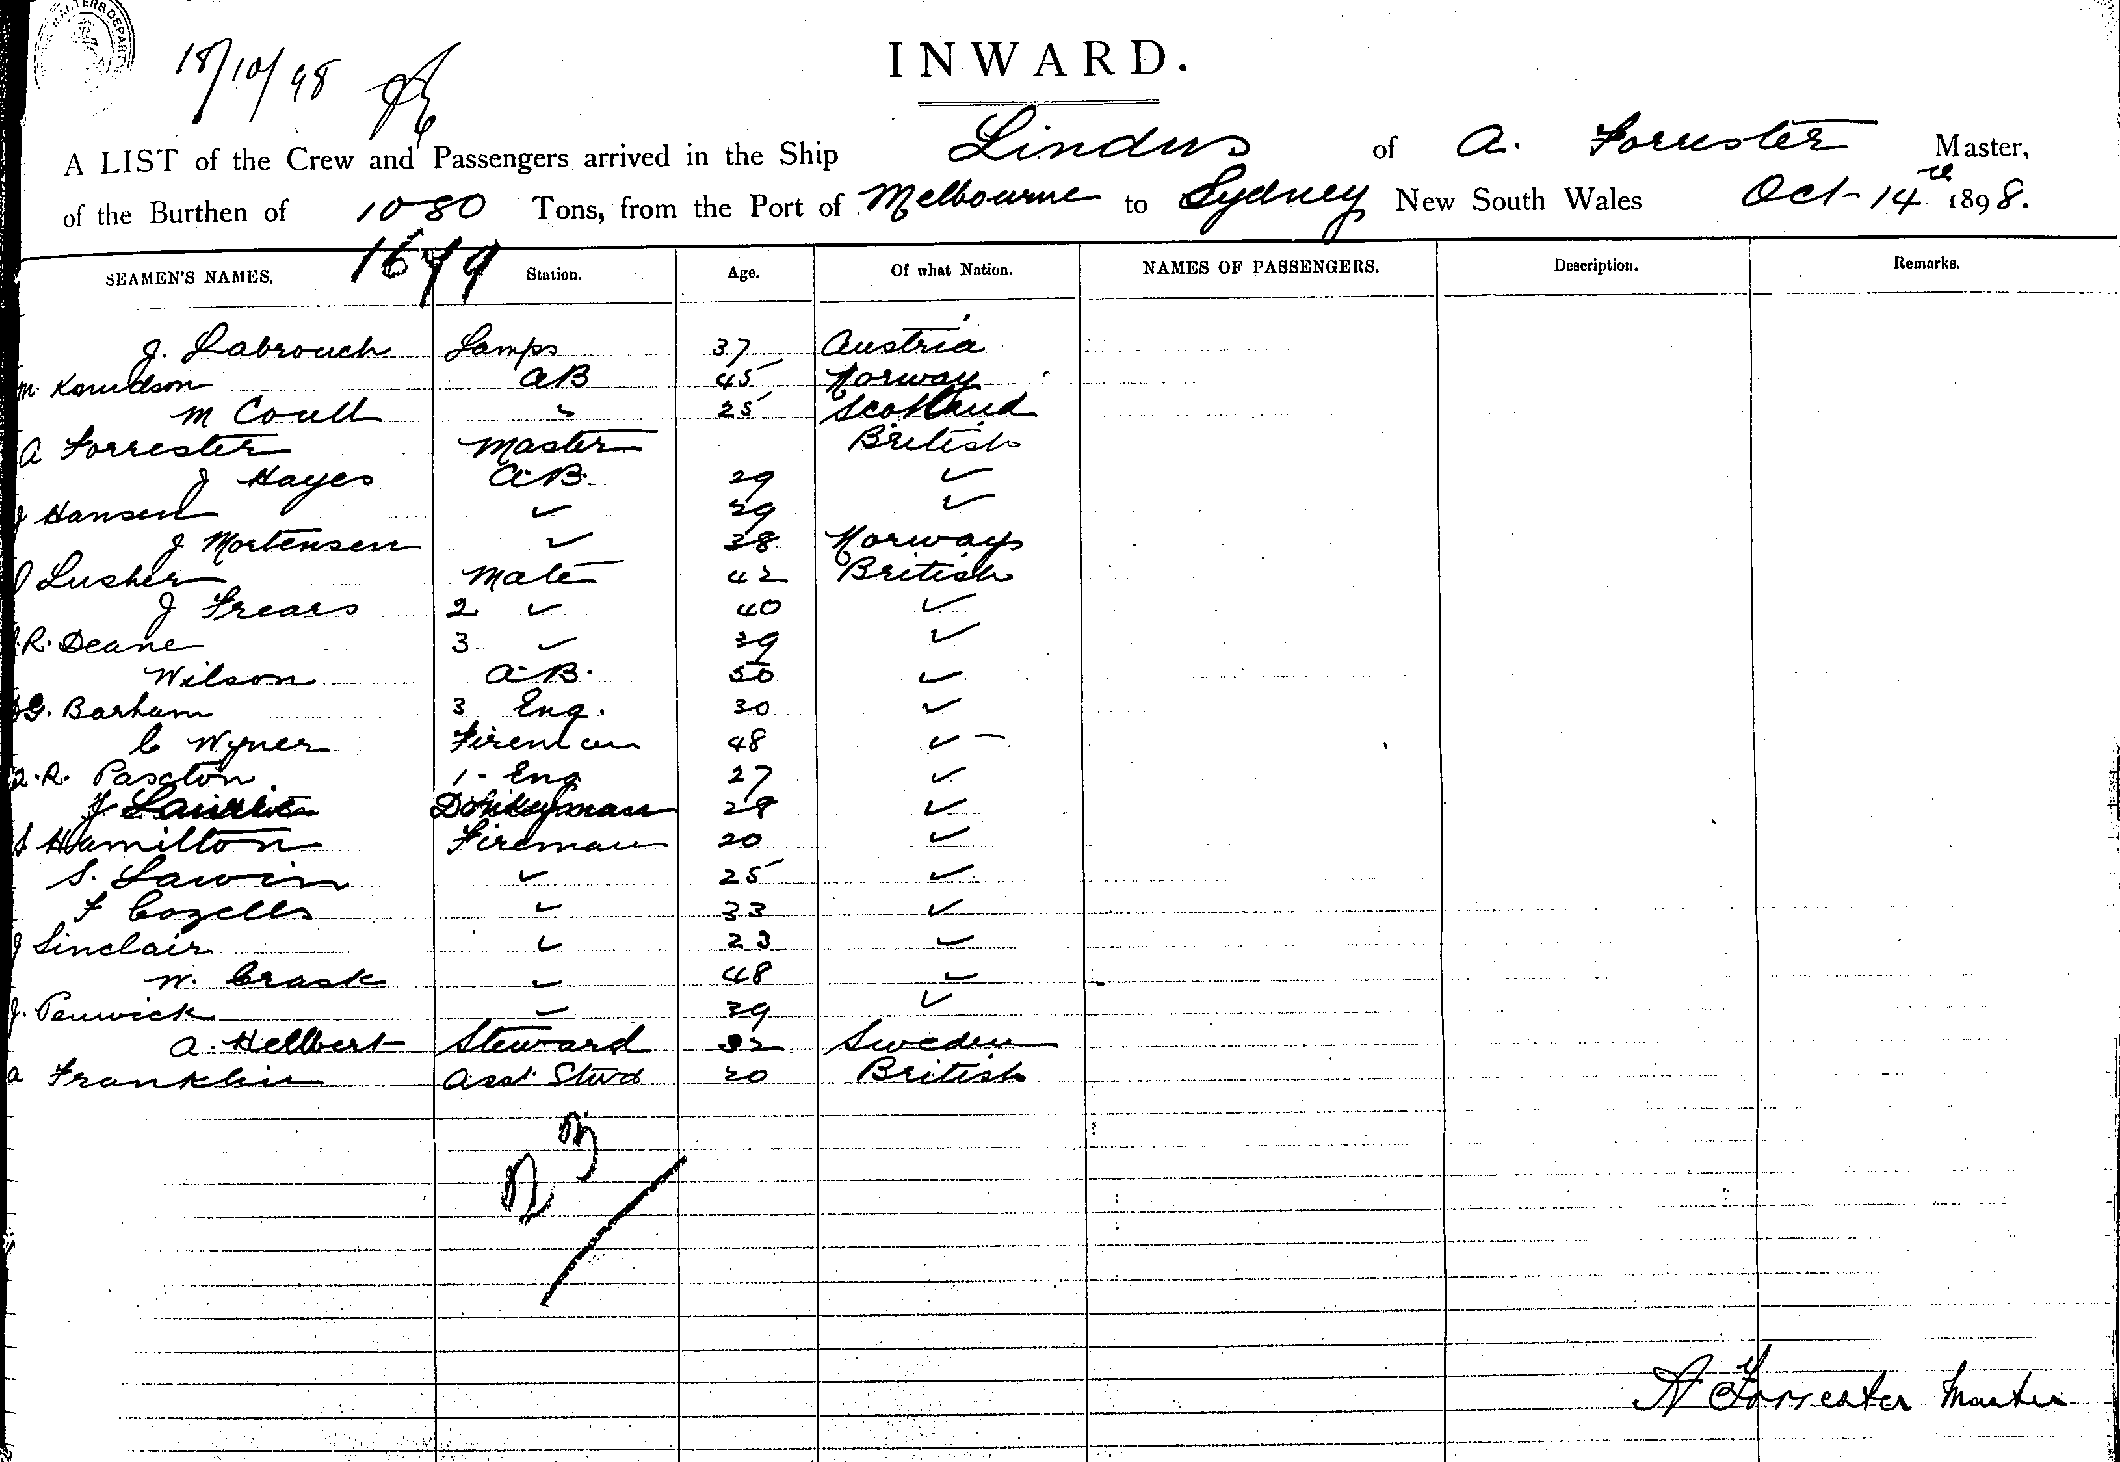 18/10/98
INWARD.
A LIST of the Crew and Passengers arrived in the Ship Lindus of A. Forrester Master,
of the Burthen of 1080 Tons, from the Port of Melbourne to Sydney New South Wales Oct 14th 1898.
1679
SEAMEN'S NAMES. Station. Age. Of what Nation. NAMES OF PASSENGERS. Description. Remarks.
J. Labrouch Lamps 37 Austria
M. Knudson AB 45 Norway
M Coull " 25 Scotland
A Forrester Master British
J Hayes A.B. 29 "
J Hansen " 29 "
J Mortensen " 38 Norway
Lusher Mate 42 British
J Frears 2 " 40 "
R. Deane 3 " 39 "
Wilson A.B. 50 "
G. Barham 3 Eng. 30 "
C Wyner Fireman 48 "
R. Paxton 1. Eng 27 "
J Donkeyman 29 "
S Hamilton Fireman 20 "
S. Lawin " 25 "
F Cozells " 33 "
J Sinclair " 23 "
W. Crask " 48 "
J. Penwick " 39 "
A. Hellbert Steward 32 Sweden
A Franklin Asst Stwd 20 British
23
A Forrester Master